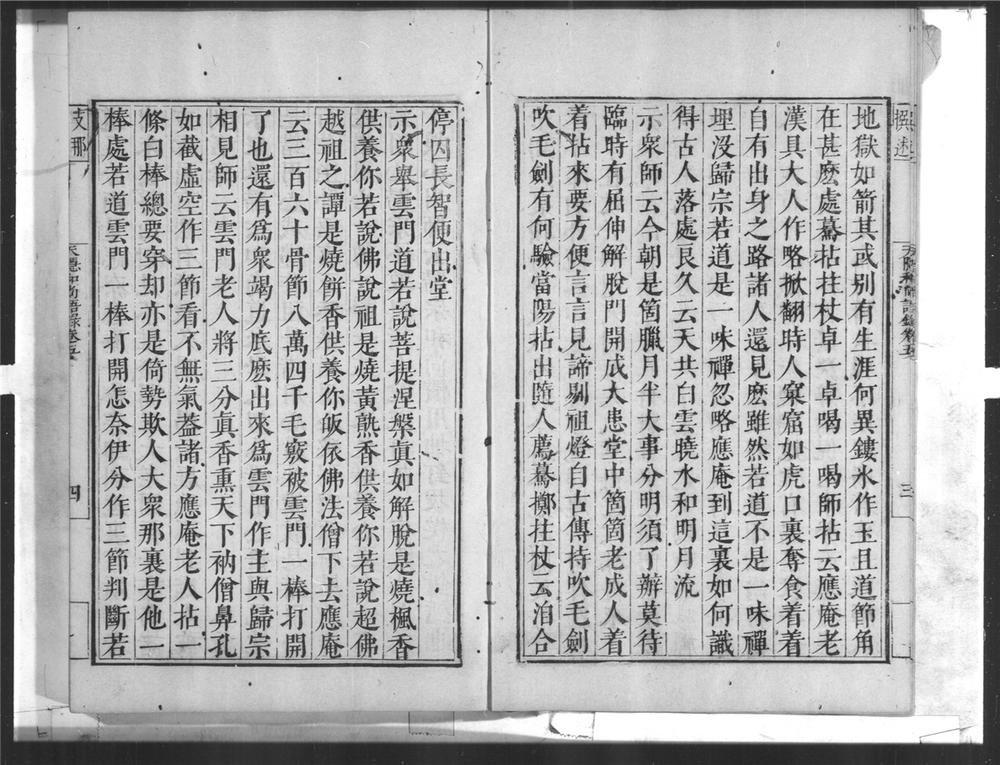 撰述
地獄如箭其或別有生涯何異鏤氷作玉且道節角
在甚麽處驀拈拄杖卓一卓喝一喝師拈云應庵老
漢具大人作略掀翻時人窠窟如虎口裏奪食着着
自有出身之路諸人還見麽雖然若道不是一味禪
埋沒歸宗若道是一味禪忽略應庵到這裏如何識
得古人落處良久云天共白雲曉水和明月流
示衆師云今朝是箇臘月半大事分明須了辦莫待
臨時有屈伸解脫門開成大患堂中箇箇老成人着
着拈來要方便言言見諦剔祖燈自古傳持吹毛劍
吹毛劍有何驗當陽拈出隨人薦驀擲拄杖云泊合
三
停囚長智便出堂
示衆舉雲門道若說菩提涅槃眞如解脫是燒楓香
供養你若說佛說祖是燒黃熟香供養你若說超佛
越祖之譚是燒餅香供養你皈依佛法僧下去應庵
云三百六十骨節八萬四千毛竅被雲門一棒打開
了也還有爲衆竭力底麽出來爲雲門作主與歸宗
相見師云雲門老人將三分眞香熏天下衲僧鼻孔
如截虛空作三節看不無氣蓋諸方應庵老人拈一
條白棒總要穿却亦是倚勢欺人大衆那裏是他一
棒處若道雲門一棒打開怎奈伊分作三節判斷若
支那
天隱和尚語錄卷五
四